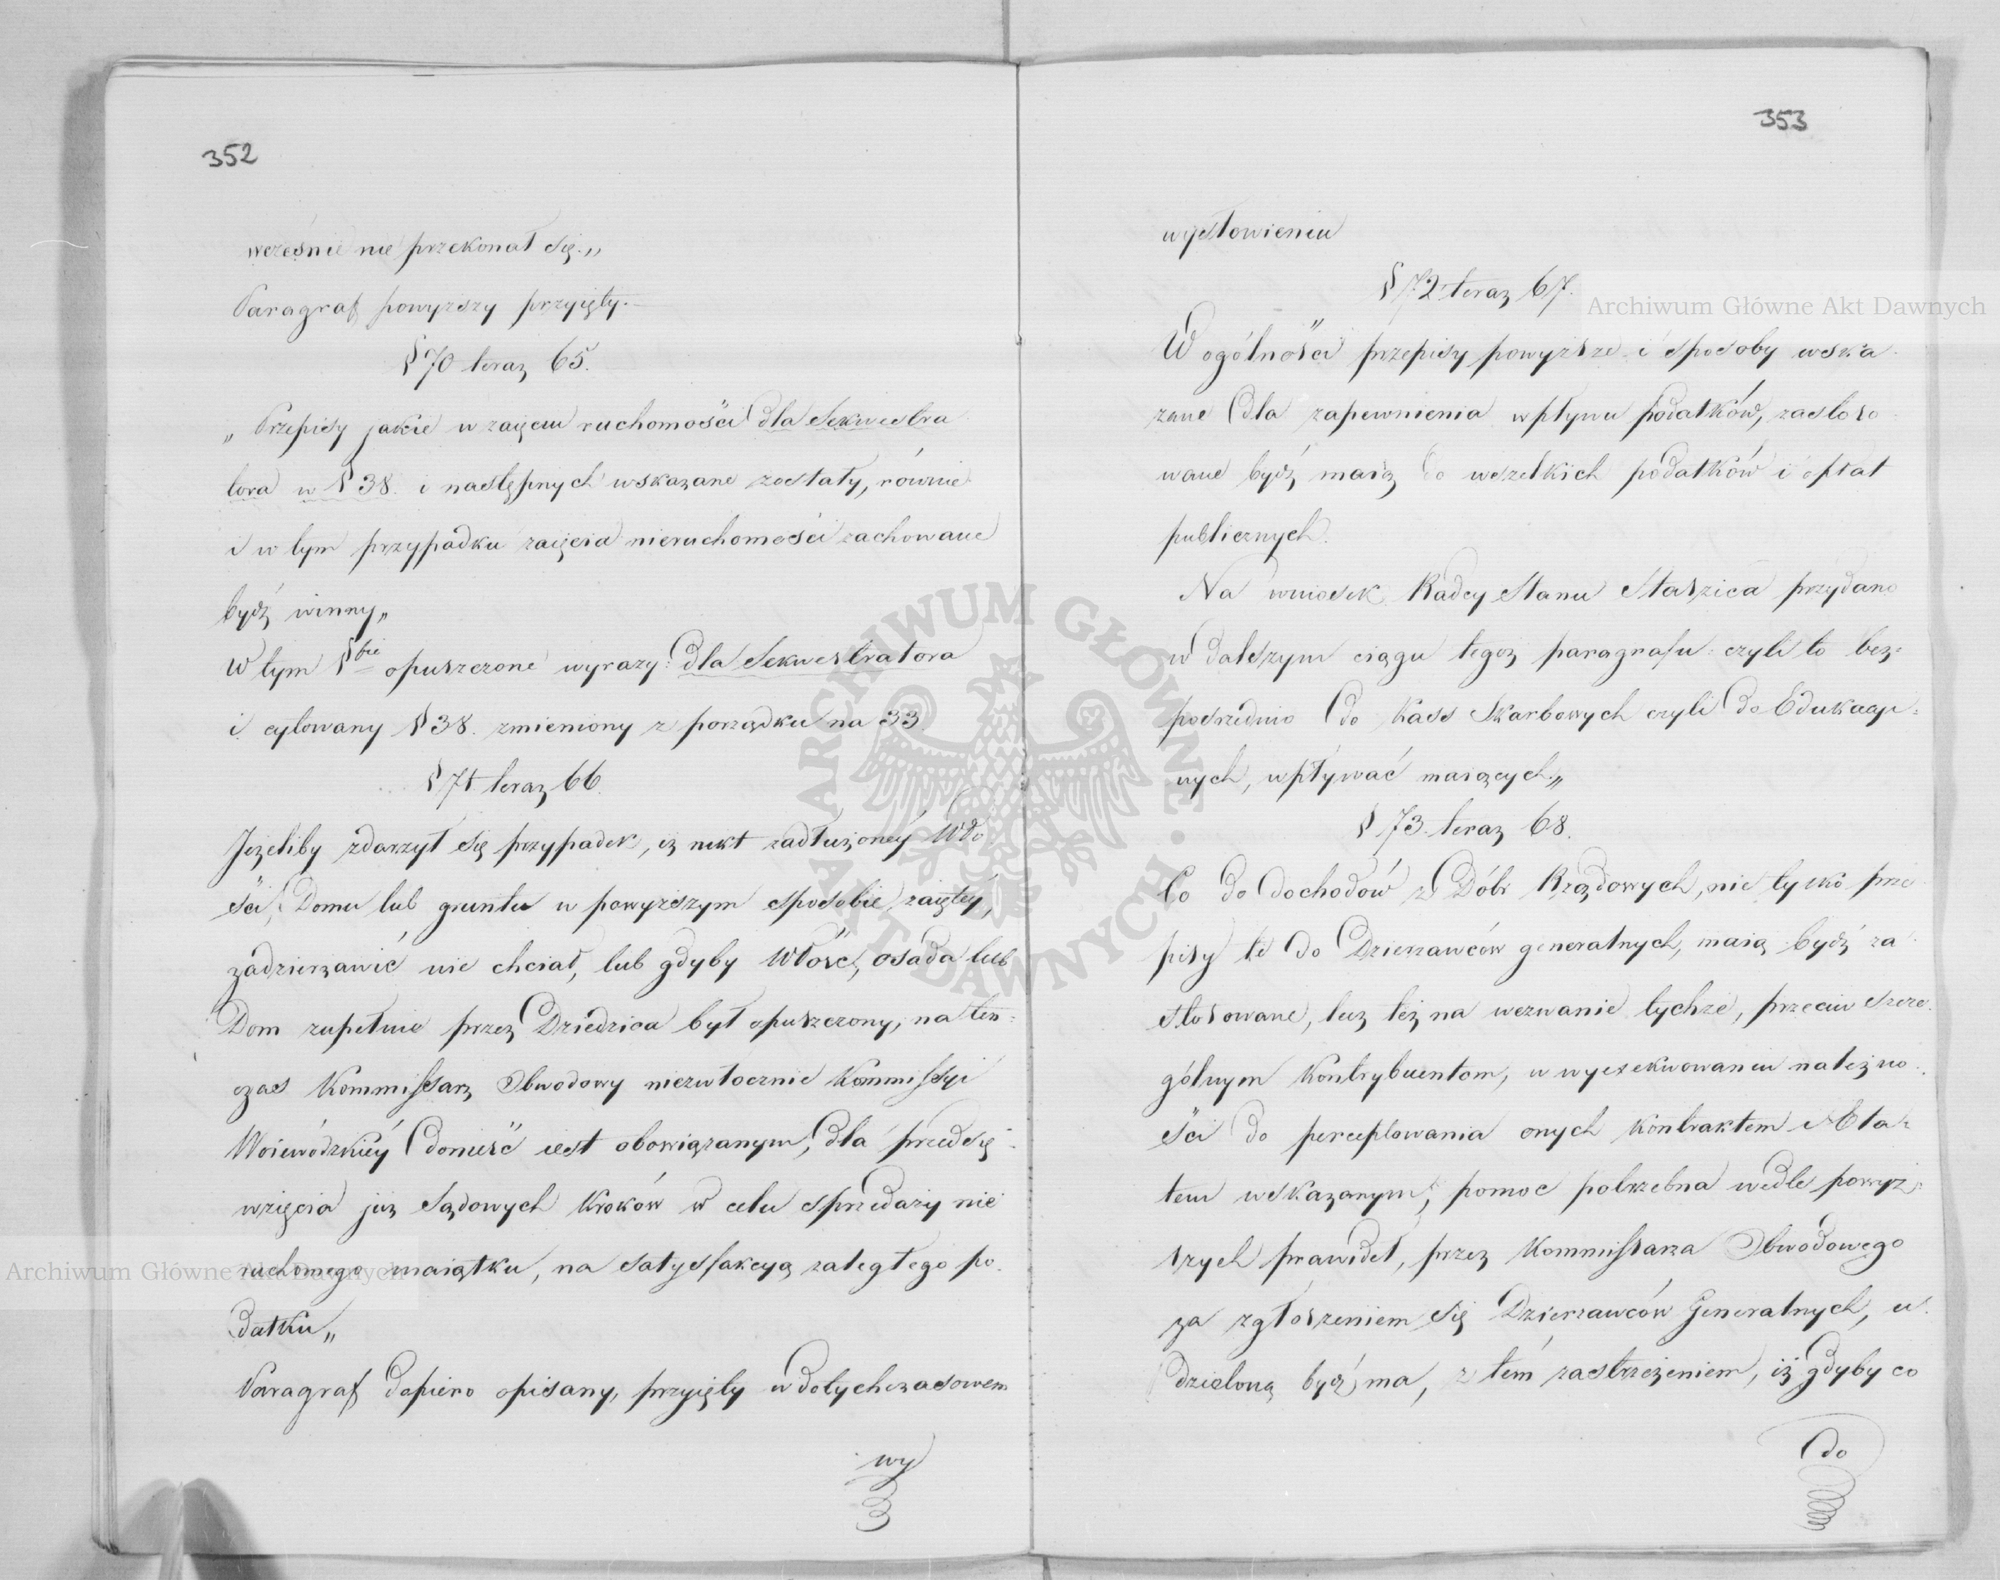 352
wcześnie nie przekonał się.„
Paragraf powyrszy przyięty.
§ 70 teraz 65.
„Przepisy jakie w zaięciu ruchomości dla Sekwestra
tora w § 38. i następnych wskazane zostały, równie
i w tym przypadku zaięcia nieruchomości zachowane
bydź winny„
W tym §bie opuszczone wyrazy: dla Sekwestratora
i cytowany § 38. zmieniony z porządku na 33.
§ 71 teraz 66.
Jeżeliby zdarzył się przypadek, iż nikt zadłużoney Wło
ści, Domu lub gruntu w powyższym sposobie zaiętey,
zadzierżawić nie chciał, lub gdyby Włość, osada lub
Dom zupełnie przez Dziedzica był opuszczony, na ten-
czas Kommissarz Obwodowy niezwłocznie Kommissyi
Woiewódzkiey donieść iest obowiązanym, dla przedsię-
wzięcia już Sądowych Kroków w celu sprzedaży nie
ruchomego maiątku, na satysfakcyą zaległego po-
datku„
Paragraf dopiero opisany, przyięty w dotychczasowem
wy
353
wysłowieniu
§ 72 teraz 67.
W ogólności przepisy powyższe i sposoby wska-
zane dla zapewnienia wpływu podatków, zastoso-
wane bydź maią do wszelkich podatków i opłat
publicznych.
Na wniosek Radcy Stanu Staszica przydano
w dalszym ciągu tegoż paragrafu: czyli to bez=
pośrednio do Kass Skarbowych czyli do Edukacyi=
nych, wpływać maiących.„
§ 73. teraz 68.
Co do dochodów z Dóbr Rządowych, nie tylko prze
pisy te do Dzierżawców generalnych, maią bydź za-
stosowane, lecz też na wezwanie tychże, przeciw szcze-
gólnym Kontrybuentom, w wyexekwowaniu należno-
ści do perceptowania onych Kontraktem i Eta=
tem wskazanym, pomoc potrzebna wedle powyż=
szych prawideł, przez Kommissarza Obwodowego
za zgłoszeniem się Dzierżawców Generalnych, u-
dzieloną bydź ma, z tém zastrzeżeniem, iż gdyby co
do
Archiwum Główne Akt Dawnych
Archiwum Główne Akt Dawnych
ARCHIWUM GŁÓWNE AKT DAWNYCH